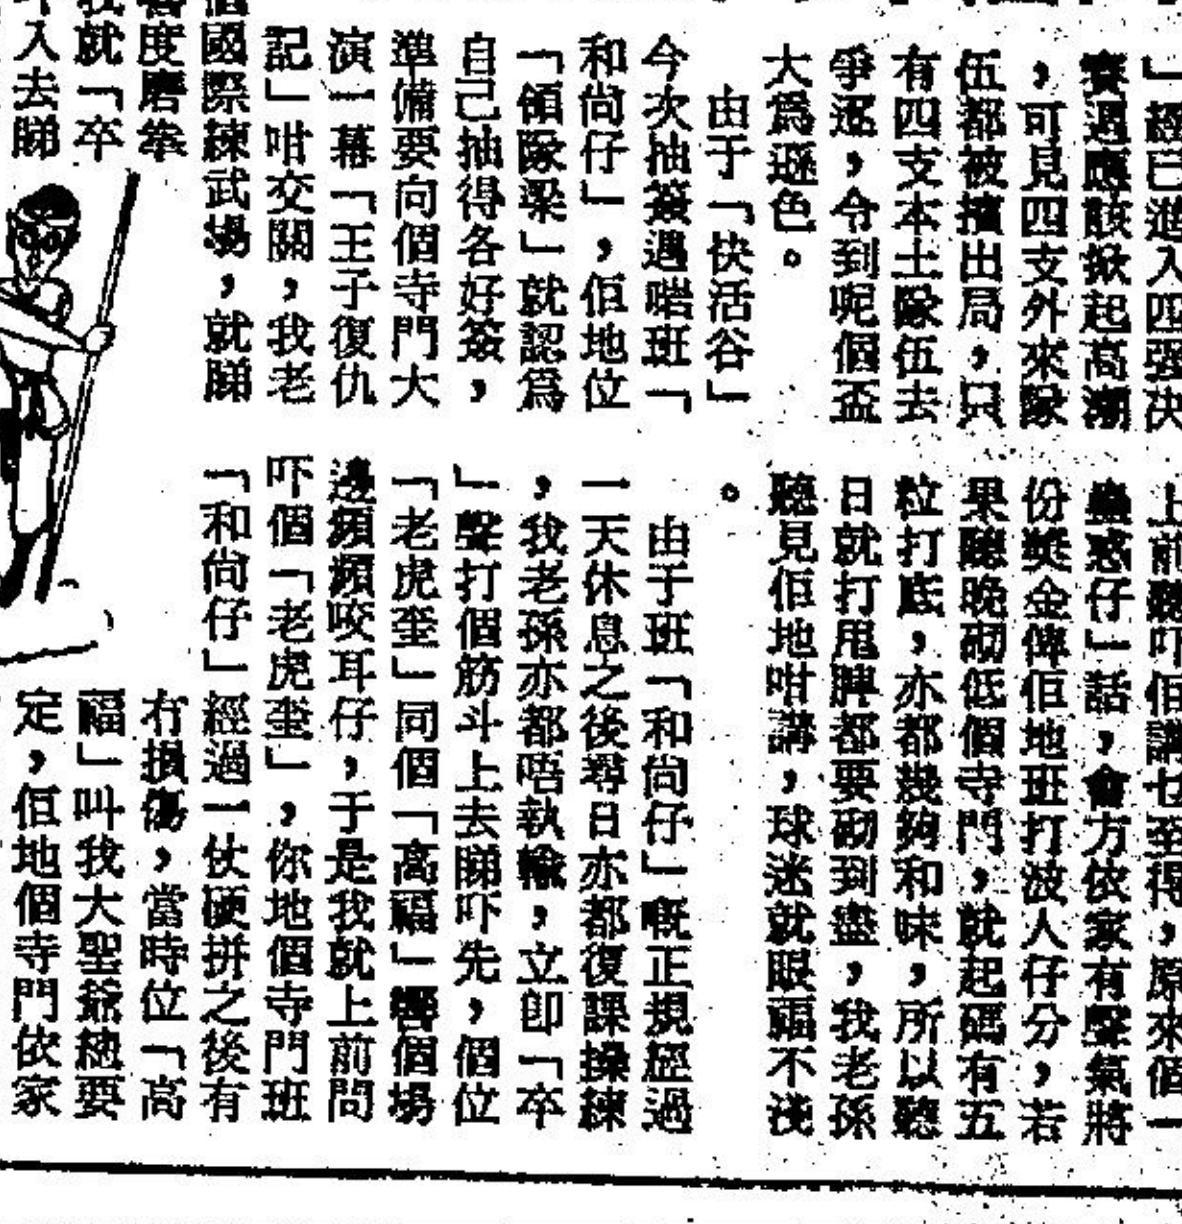 」經已進入四强决
賽週應該掀起高潮
，可見四支外來隊
伍都被擯出局，只
有四支本土隊伍去
爭逐，令到呢個盃
大爲遜色。
由于「快活谷」
今次抽簽遇啱班「
和尚仔」，佢地位
「領隊梁」就認爲
自己抽得各好簽，
準備要向個寺門大
演一幕「王子復仇
記」咁交關，我老
個國際練武場，就睇
響度磨拳
我就「卒
入去睇
上前聽吓佢講乜至得，原來個一
蠱惑仔」話，會方依家有聲氣將
份獎金俾佢地班打波人仔分，若
果聽晚砌低個寺門，就起碼有五
粒打底，亦都幾夠和味，所以聽
日就打甩脾都要砌到盡，我老孫
聽見佢地咁講，球迷就眼福不淺
。
由于班「和尚仔」嘅正規歷過
一天休息之後尋日亦都復課操練
，我老孫亦都唔執輸，立卽「卒
」聲打個筋斗上去睇吓先，個位
「老虎奎」同個「高福」響個場
邊頻頻咬耳仔，于是我就上前問
吓個「老虎奎」，你地個寺門班
「和尚仔」經過一仗硬拼之後有
冇損傷，當時位「高
福」叫我大聖爺總要
定，佢地個寺門依家